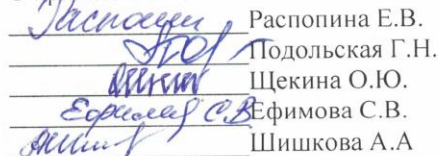 Распопина Е.В.
Подольская Г.Н.
Щекина О.Ю.
Ефимова С.В. Ефимова С.В.
Шишкова А.А